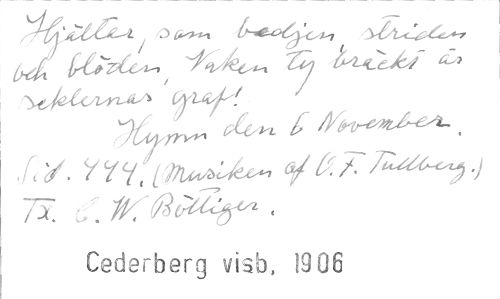 Hjältar, som bedjen, striden
och blöden, Vaken ty bräckt är
seklernas graf!
Hymn den 6 November.
Sid. 444. (Musiken af O. F. Tullberg.)
Tx. C. W. Böttiger.
Cederberg visb, 1906